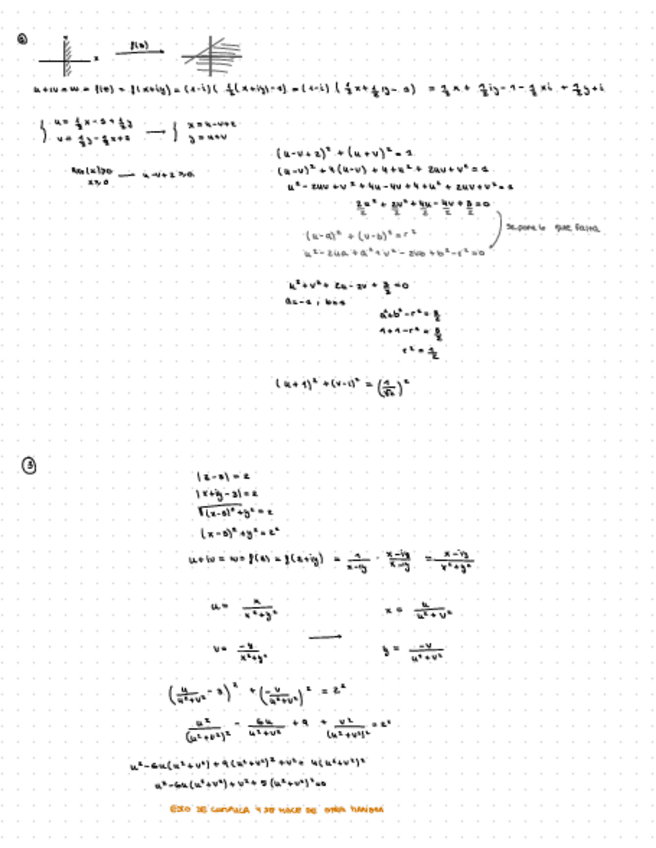 ②
f(z)
x
u+iv = w = f(z) = f(x+iy) = (1-i)( ½(x+iy)-1) = (1-i)( ½x+½iy-1) = ½x + ½iy-1-½xi + ½y+i
u = ½x-1+½y
v = ½y-½x+1
x = u-v+2
y = u+v
Re(z)≥0
x≥0
u-v+2≥0
(u-v+2)² + (u+v)² = 1
(u-v)² + 4(u-v) + 4 + u² + 2uv + v² = 1
u² - 2uv + v² + 4u - 4v + 4 + u² + 2uv + v² = 1
(u-a)² + (v-b)² = r²
Se pone lo que falta
u² - 2ua + a² + v² - 2vb + b² - r² = 0
u² + v² + 2u - 2v + 3/2 = 0
a=-1, b=1
a²+b²-r² = 3/2
1+1-r² = 3/2
r² = ½
(u+1)² + (v-1)² = (1/√2)²
③
|z-3| = 2
|x+iy-3| = 2
√(x-3)²+y² = 2
(x-3)²+y² = 2²
u = x/(x²+y²)
x = u/(u²+v²)
v = -y/(x²+y²)
y = -v/(u²+v²)
(u/(u²+v²) - 3)² + (-v/(u²+v²))² = 2²
u²/(u²+v²)² - 6u/(u²+v²) + 9 + v²/(u²+v²)² = 2²
u² - 6u(u²+v²) + 9(u²+v²)² + v² = 4(u²+v²)²
u² - 6u(u²+v²) + v² + 5(u²+v²)² = 0
ESTO SE COMPLICA Y SE HACE DE OTRA MANERA